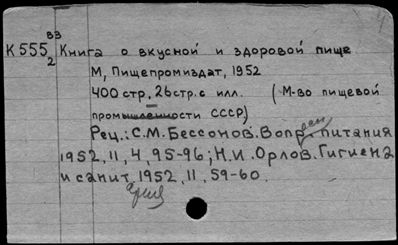 К 555 33/2 Книга о вкусной и здоровой пище
М, Пищепромиздат, 1952
400 стр, 26 стр. с илл. (М-во пищевой
промышленности СССР)
Рец.: С.М. Бессонов. Вопр. питания
1952, 11, 4, 95-96; Н.И. Орлов. Гигиена
и санит, 1952, 11, 59-60.